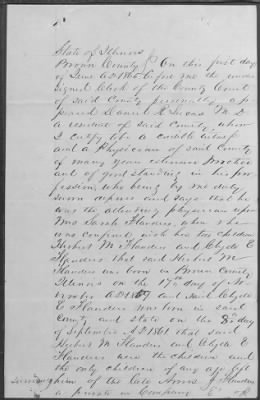 State of Illinois
Brown County } On this first day
of June A D 1865 before me the under
signed Clerk of the County Court
of said County personally ap
peared Daniel H Lucas M D
a resident of said County whom
I certify to be a credible citizen
and a Physician of said County
of many years extensive Practice
and of good standing in his pro
fession, who being by me duly
sworn deposes and says that he
was the attending physician upon
Mrs Sarah Flanders, when she
was confined with her two children
Herbert M Flanders and Clyde E
Flanders that said Herbert M
Flanders was born in Brown County
Illinois on the 17th day of No
vember AD 1859 and said Clyde
E Flanders was born in said
County and state on the 8th day
of September A D 1861 that said
Herbert M Flanders and Clyde E
Flanders were the children and
the only children of any age left
surviving him of the late Flanders
a private in Company